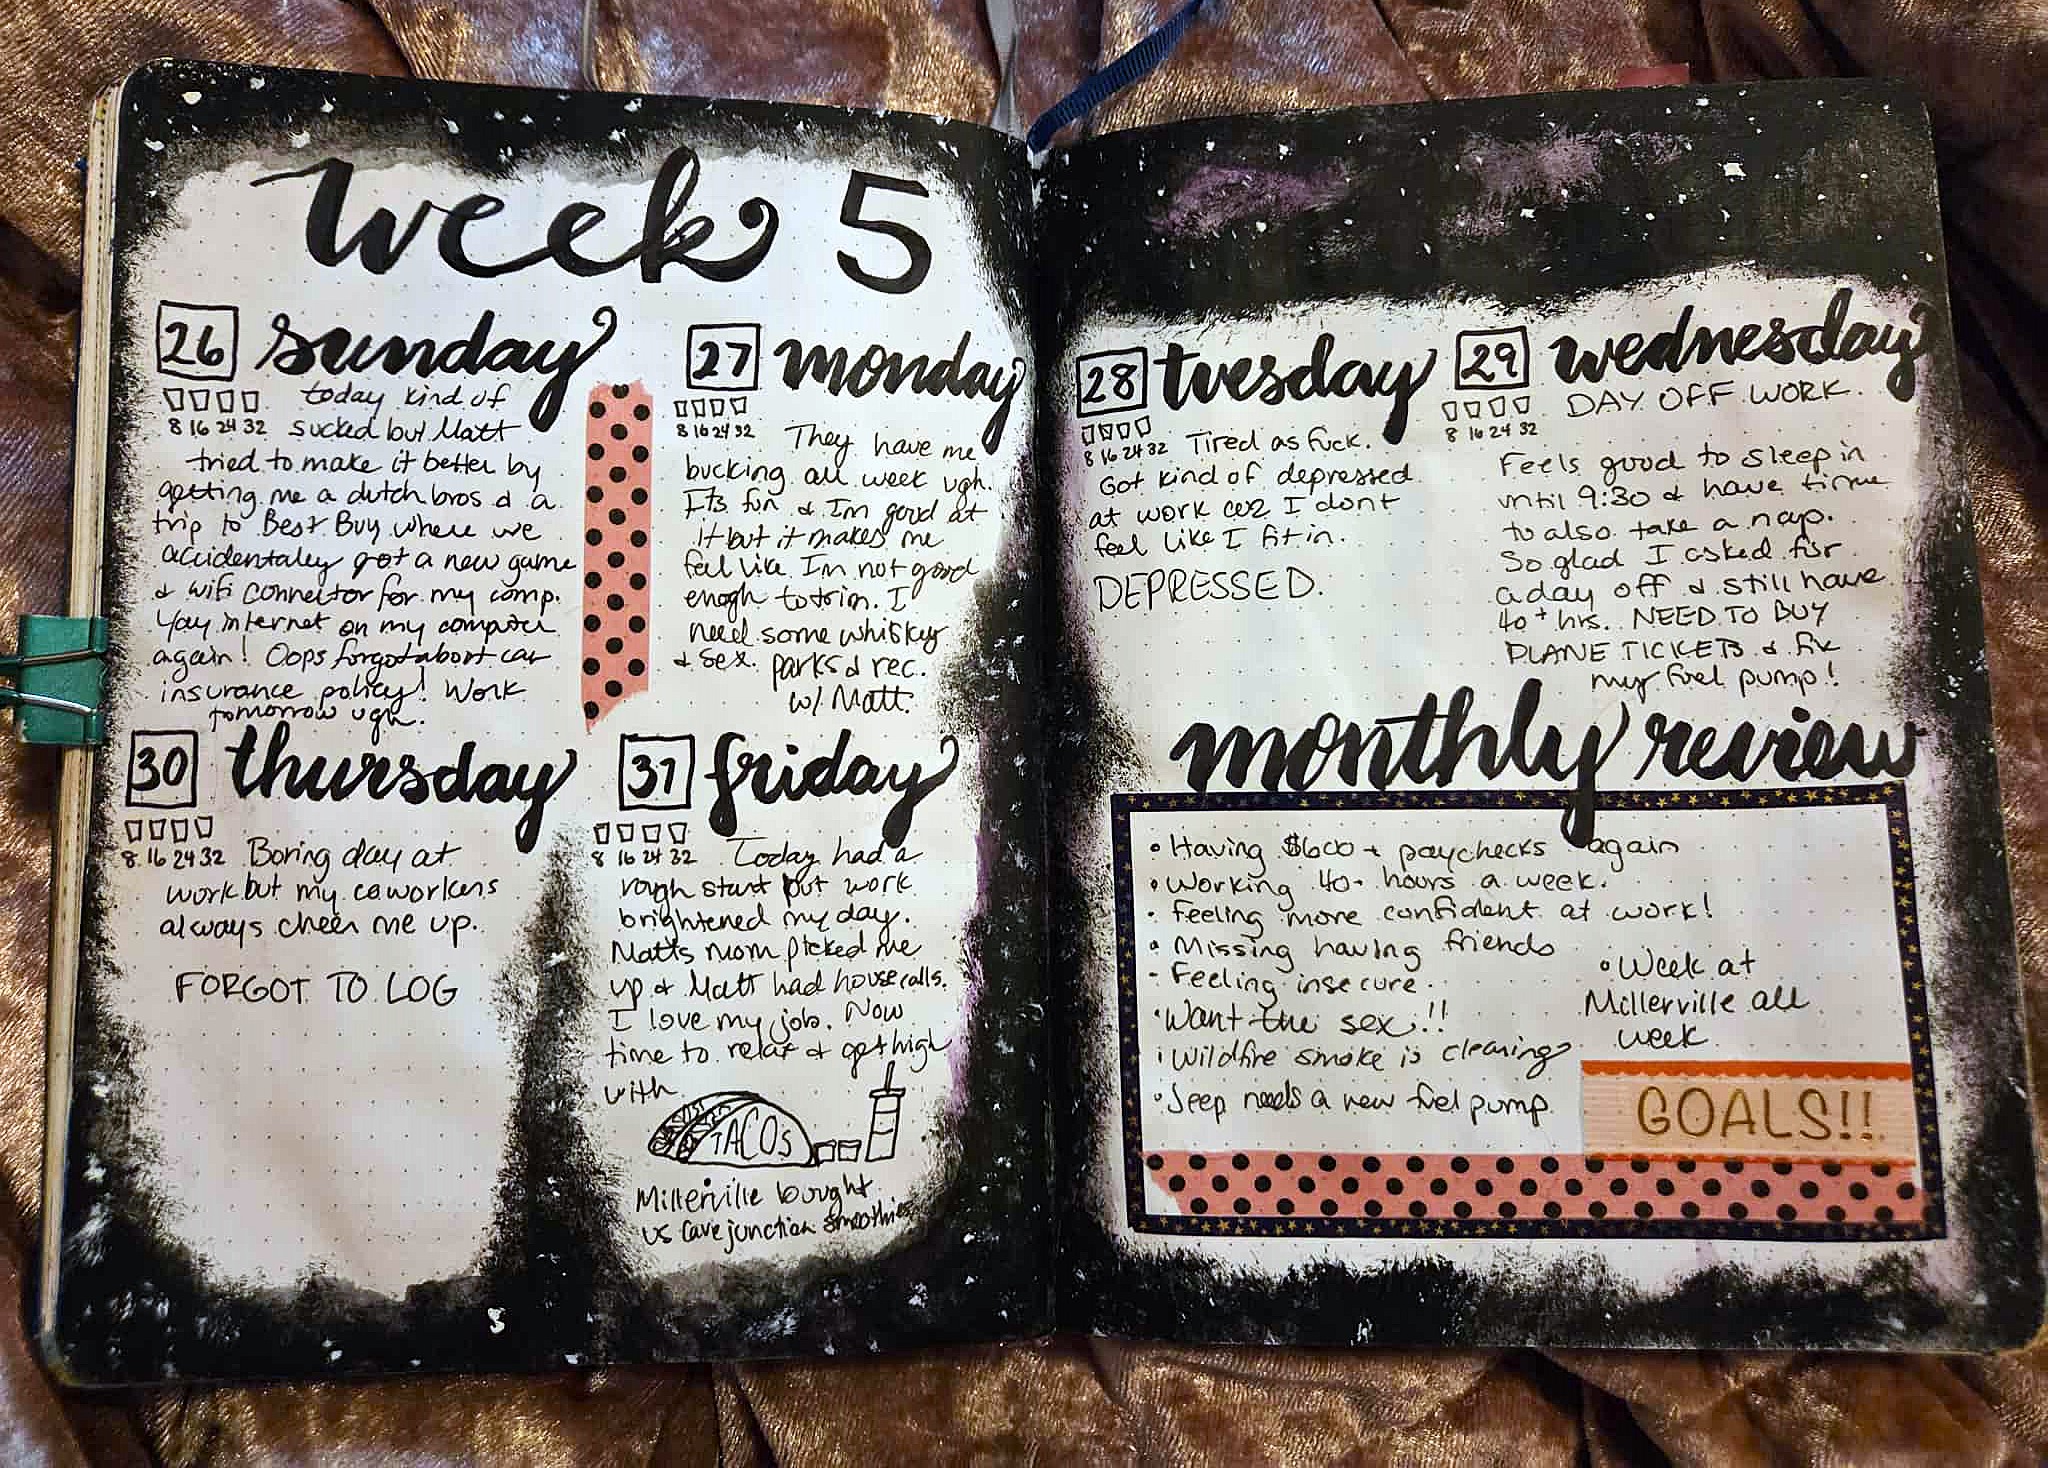 week 5
26 sunday
8 16 24 32
today kind of
sucked but Matt
tried to make it better by
getting me a dutch bros & a
trip to Best Buy where we
accidentaley got a new game
& wifi connector for my comp.
Yay internet on my computer
again! Oops forgot about car
insurance policy! Work
tomorrow ugh.
27 monday
8 16 24 32
They have me
bucking all week ugh.
It's fun & Im good at
it but it makes me
feel like Im not good
enogh to trim. I
need some whiskey
& sex. parks & rec.
w/ Matt.
28 tuesday
8 16 24 32
Tired as fuck.
Got kind of depressed
at work coz I dont
feel like I fit in.
DEPRESSED.
29 wednesday
8 16 24 32
DAY OFF WORK.
Feels good to sleep in
until 9:30 & have time
to also take a nap.
So glad I asked for
a day off & still have
40+ hrs. NEED TO BUY
PLANE TICKETS & fix
my fuel pump!
30 thursday
8 16 24 32
Boring day at
work but my coworkers
always cheer me up.
FORGOT TO LOG
31 friday
8 16 24 32
Today had a
rough start but work
brightened my day.
Matts mom picked me
up & Matt had house calls.
I love my job. Now
time to relax & get high
with
TACOS
Millerville bought
us cave junction smoothies
monthly review
• Having $600+ paychecks again
• Working 40+ hours a week.
• Feeling more confident at work!
• Missing having friends
- Feeling insecure.
• Want the sex!!
• Wildfire smoke is clearing
• Jeep needs a new fuel pump.
• Week at
Millerville all
week
GOALS!!